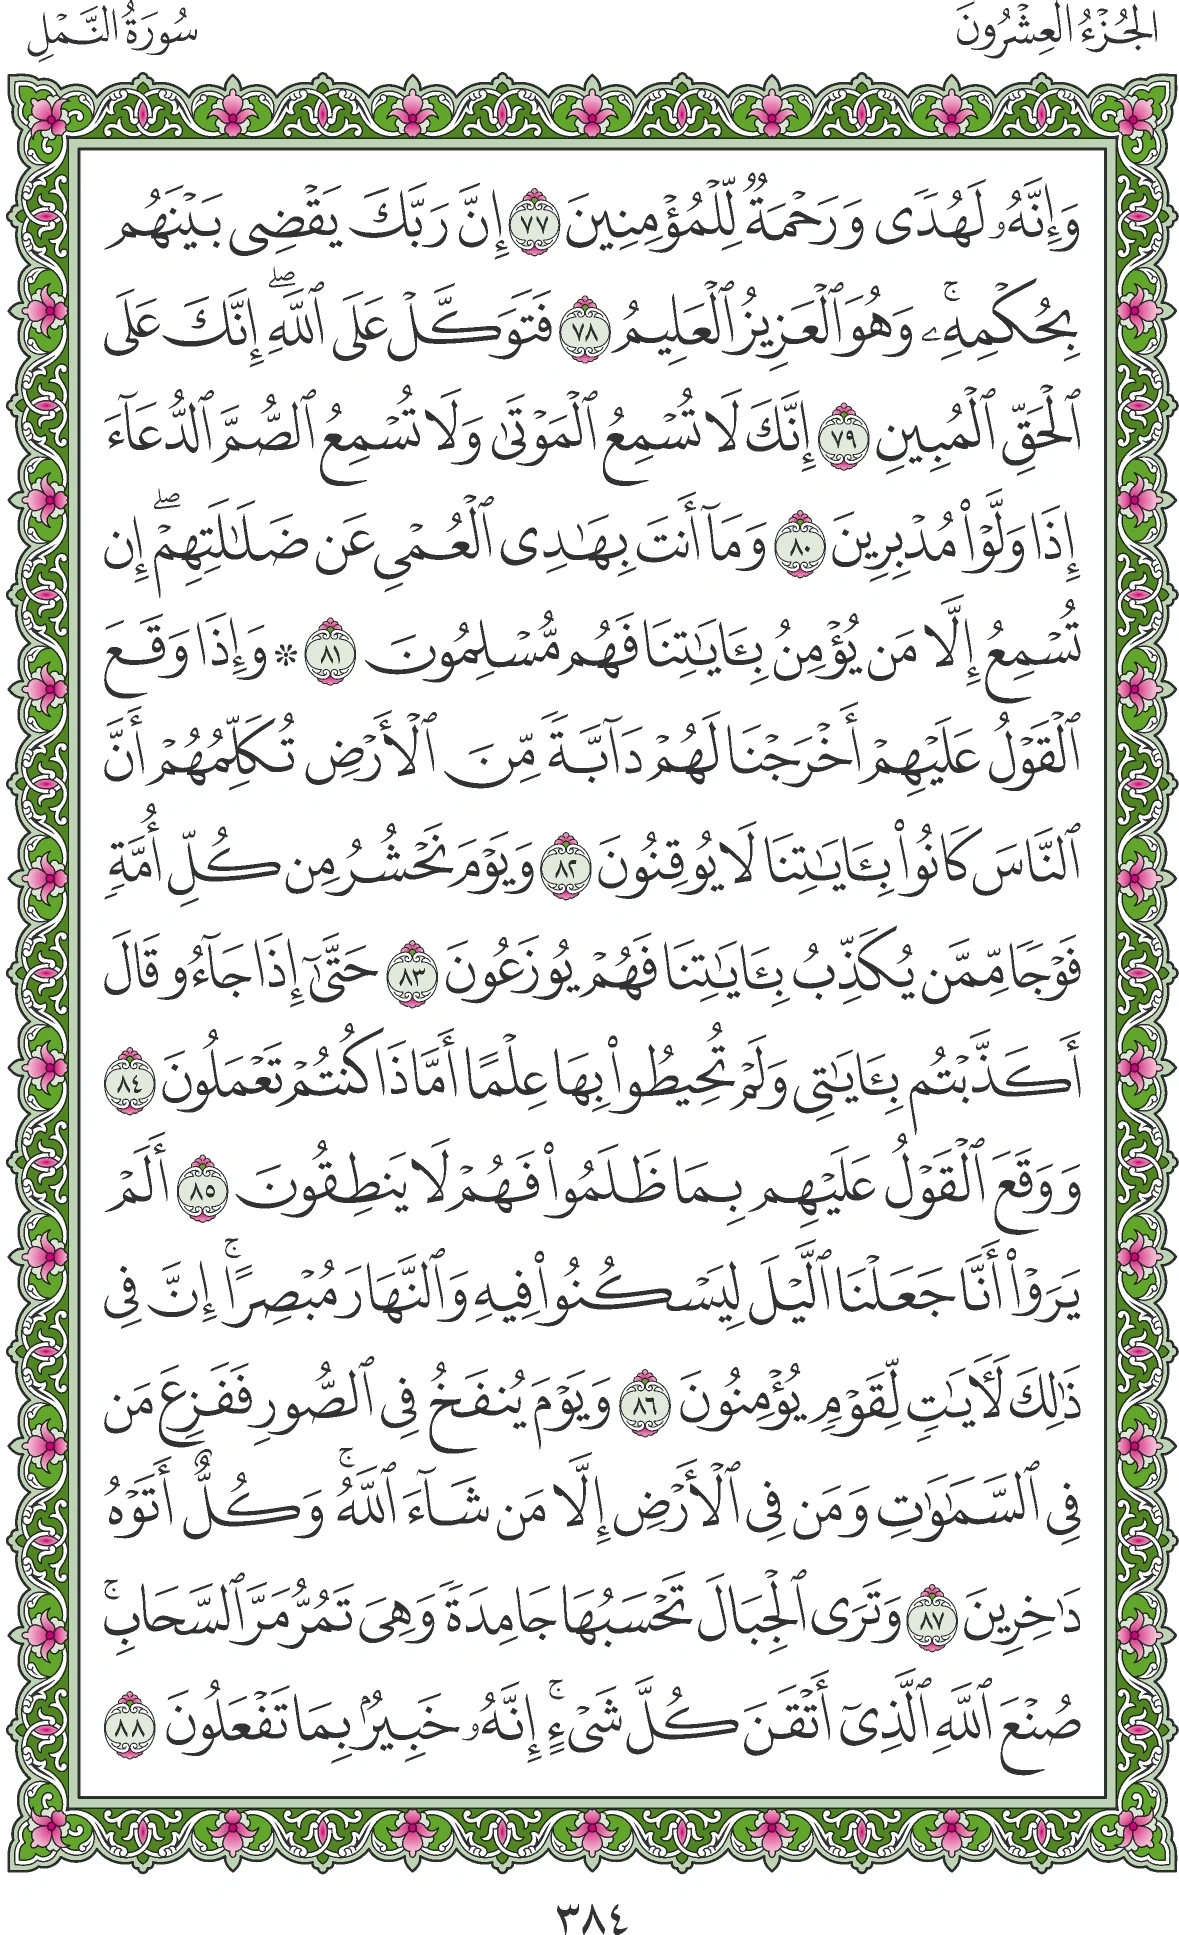 الجُزْءُ العِشْرُونَ
سُورَةُ النَّمْلِ
وَإِنَّهُۥ لَهُدًى وَرَحْمَةٌ لِّلْمُؤْمِنِينَ ٧٧ إِنَّ رَبَّكَ يَقْضِى بَيْنَهُم
بِحُكْمِهِۦۚ وَهُوَ ٱلْعَزِيزُ ٱلْعَلِيمُ ٧٨ فَتَوَكَّلْ عَلَى ٱللَّهِۖ إِنَّكَ عَلَى
ٱلْحَقِّ ٱلْمُبِينِ ٧٩ إِنَّكَ لَا تُسْمِعُ ٱلْمَوْتَىٰ وَلَا تُسْمِعُ ٱلصُّمَّ ٱلدُّعَآءَ
إِذَا وَلَّوْا۟ مُدْبِرِينَ ٨٠ وَمَآ أَنتَ بِهَـٰدِى ٱلْعُمْىِ عَن ضَلَـٰلَتِهِمْۖ إِن
تُسْمِعُ إِلَّا مَن يُؤْمِنُ بِـَٔايَـٰتِنَا فَهُم مُّسْلِمُونَ ٨١ * وَإِذَا وَقَعَ
ٱلْقَوْلُ عَلَيْهِمْ أَخْرَجْنَا لَهُمْ دَآبَّةً مِّنَ ٱلْأَرْضِ تُكَلِّمُهُمْ أَنَّ
ٱلنَّاسَ كَانُوا۟ بِـَٔايَـٰتِنَا لَا يُوقِنُونَ ٨٢ وَيَوْمَ نَحْشُرُ مِن كُلِّ أُمَّةٍ
فَوْجًا مِّمَّن يُكَذِّبُ بِـَٔايَـٰتِنَا فَهُمْ يُوزَعُونَ ٨٣ حَتَّىٰٓ إِذَا جَآءُو قَالَ
أَكَذَّبْتُم بِـَٔايَـٰتِى وَلَمْ تُحِيطُوا۟ بِهَا عِلْمًا أَمَّاذَا كُنتُمْ تَعْمَلُونَ ٨٤
وَوَقَعَ ٱلْقَوْلُ عَلَيْهِم بِمَا ظَلَمُوا۟ فَهُمْ لَا يَنطِقُونَ ٨٥ أَلَمْ
يَرَوْا۟ أَنَّا جَعَلْنَا ٱلَّيْلَ لِيَسْكُنُوا۟ فِيهِ وَٱلنَّهَارَ مُبْصِرًاۚ إِنَّ فِى
ذَٰلِكَ لَـَٔايَـٰتٍ لِّقَوْمٍ يُؤْمِنُونَ ٨٦ وَيَوْمَ يُنفَخُ فِى ٱلصُّورِ فَفَزِعَ مَن
فِى ٱلسَّمَـٰوَٰتِ وَمَن فِى ٱلْأَرْضِ إِلَّا مَن شَآءَ ٱللَّهُۚ وَكُلٌّ أَتَوْهُ
دَٰخِرِينَ ٨٧ وَتَرَى ٱلْجِبَالَ تَحْسَبُهَا جَامِدَةً وَهِىَ تَمُرُّ مَرَّ ٱلسَّحَابِۚ
صُنْعَ ٱللَّهِ ٱلَّذِىٓ أَتْقَنَ كُلَّ شَىْءٍۚ إِنَّهُۥ خَبِيرٌۢ بِمَا تَفْعَلُونَ ٨٨
٣٨٤